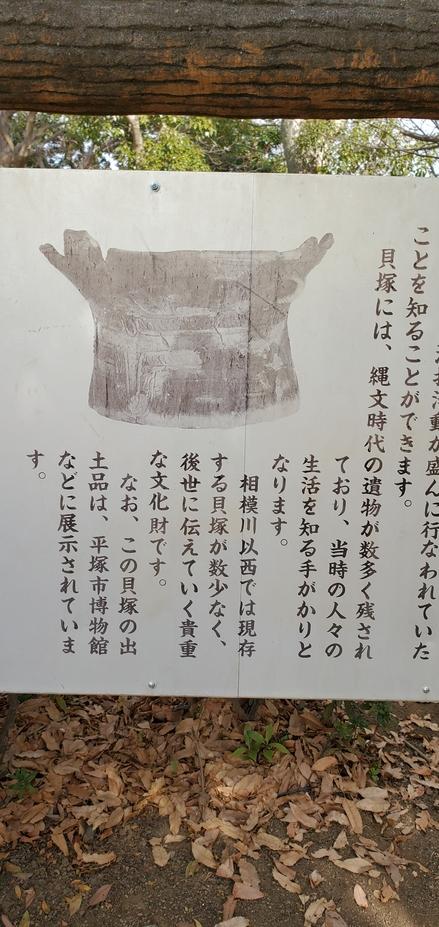 動が盛んに行なわれていた
ことを知ることができます。
貝塚には、縄文時代の遺物が数多く残され
ており、当時の人々の
生活を知る手がかりと
なります。
相模川以西では現存
する貝塚が数少なく、
後世に伝えていく貴重
な文化財です。
なお、この貝塚の出
土品は、平塚市博物館
などに展示されていま
す。